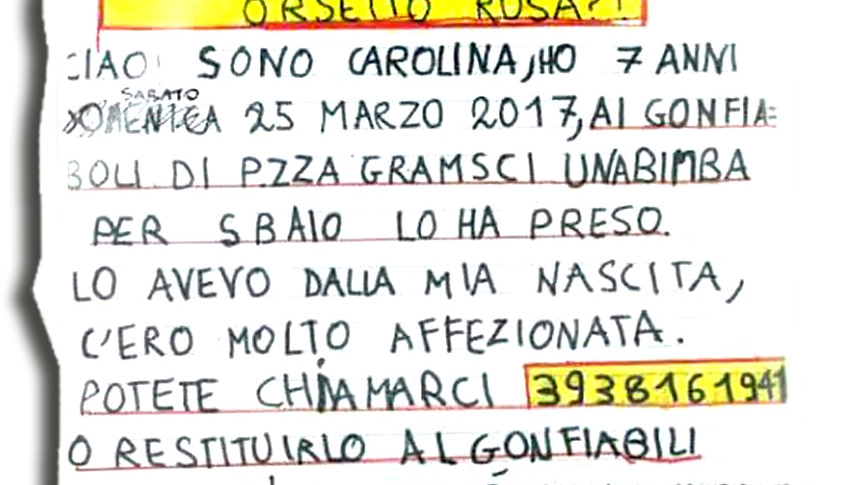 ORSETTO ROSA?!
CIAO! SONO CAROLINA, HO 7 ANNI
SABATO
DOMENICA 25 MARZO 2017, AI GONFIA=
BOLI DI P.ZZA GRAMSCI UNA BIMBA
PER SBAIO LO HA PRESO.
LO AVEVO DALLA MIA NASCITA,
C'ERO MOLTO AFFEZIONATA.
POTETE CHIAMARCI 3938161941
O RESTITUIRLO AL GONFIABILI